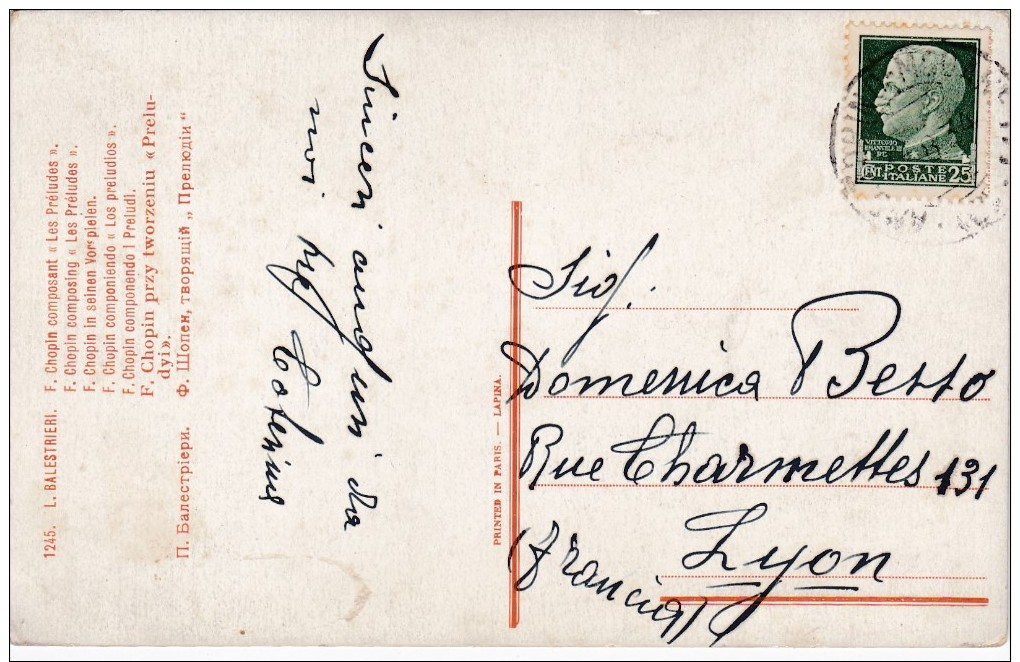 1245. L. BALESTRIERI. F. Chopin composant « Les Préludes ».
F. Chopin composing « Les Préludes ».
F. Chopin in seinen Vorspielen.
F. Chopin componiendo « Los preludios ».
F. Chopin componendo I Preludi.
F. Chopin przy tworzeniu « Prelu-
dyi».
П. Балестріери. Ф. Шопен, творящій „ Прелюдіи "
Sinceri auguri da
noi
PRINTED IN PARIS. — LAPINA.
VITTORIO
EMANUELE III
POSTE
ITALIANE
CENT. 25
Sig.
Domenica Betto
Rue Charmettes 131
Lyon
(Francia)